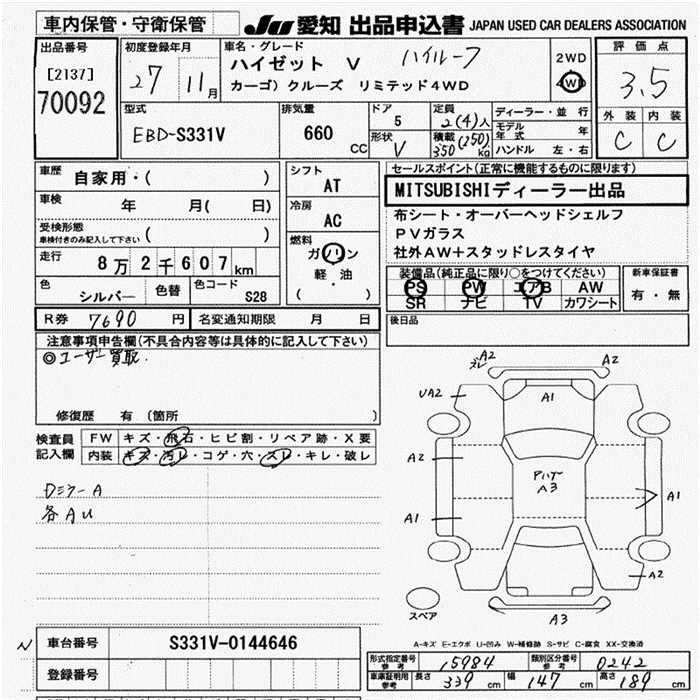 車内保管・守衛保管
JU 愛知 出品申込書 JAPAN USED CAR DEALERS ASSOCIATION
出品番号
[2137]
70092
初度登録年月
27 11月
車名・グレード
ハイゼット V ハイルーフ
カーゴ) クルーズ リミテッド4WD
2WD
4WD
評価点
3.5
外装 内装
C C
型式
EBD-S331V
排気量
660 CC
ドア
5
形状
V
定員
2(4)人
積載
350(250)kg
ディーラー・並行
モデル年式 年
ハンドル 左・右
車歴
自家用・( )
車検
年 月( 日)
受検形態
車検付きのみ記入して下さい ( )
走行
8万2千607km
色
シルバー
色替
色コード
S28
シフト
AT
冷房
AC
燃料
ガソリン
軽・油
( )
セールスポイント(正常に機能するものに限ります)
MITSUBISHIディーラー出品
布シート・オーバーヘッドシェルフ
PVガラス
社外AW+スタッドレスタイヤ
装備品(純正品に限り○をつけてください)
PS PW エアB AW
SR ナビ TV カワシート
新車保証書
有・無
後日品
R券 7690円
名変通知期限 月 日
注意事項申告欄(不具合内容等は具体的に記入して下さい)
◎ユーザー買取.
修復歴 有(箇所 )
検査員
記入欄
FW キズ・飛石・ヒビ割・リペア跡・X要
内装 キズ・汚レ・コゲ・穴・スレ・キレ・破レ
Dミラー A
各AU
ズレ A2
A2
UA2
A1
A2
A1
A3
A1
A2
A3
スペア
A-キズ E-エクボ U-凹み W-補修跡 S-サビ C-腐食 XX-交換済
N
車台番号 S331V-0144646
登録番号
形式指定番号
参考
15984
類別区分番号
参考
0242
車庫証明用
参考
長さ 339 cm 幅 147 cm 高さ 189 cm